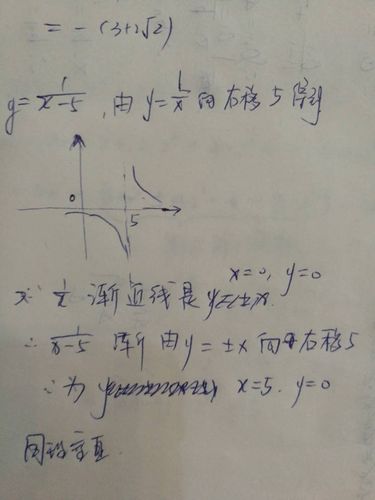 = -(3+2√2)
y = 1/(x-5), 由 y = 1/x 向右移5得到
0
5
x=0, y=0
又∵ 1/x 渐近线是 y=±x.
∴ 1/(x-5) 渐 由 y = ±x 向右移5
∴为 x=5. y=0